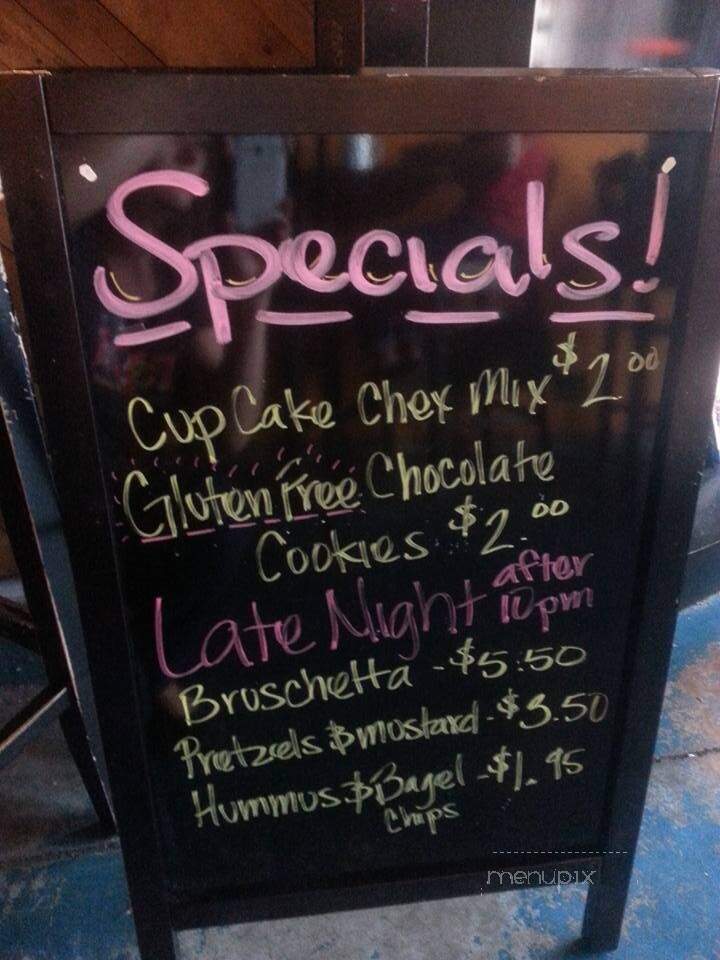 Specials!
CupCake Chex Mix $2.00
Gluten Free Chocolate
Cookies $2.00
Late Night after 10pm
Bruschetta - $5.50
Pretzels & mustard - $3.50
Hummus & Bagel - $1.95
Chips
menupix